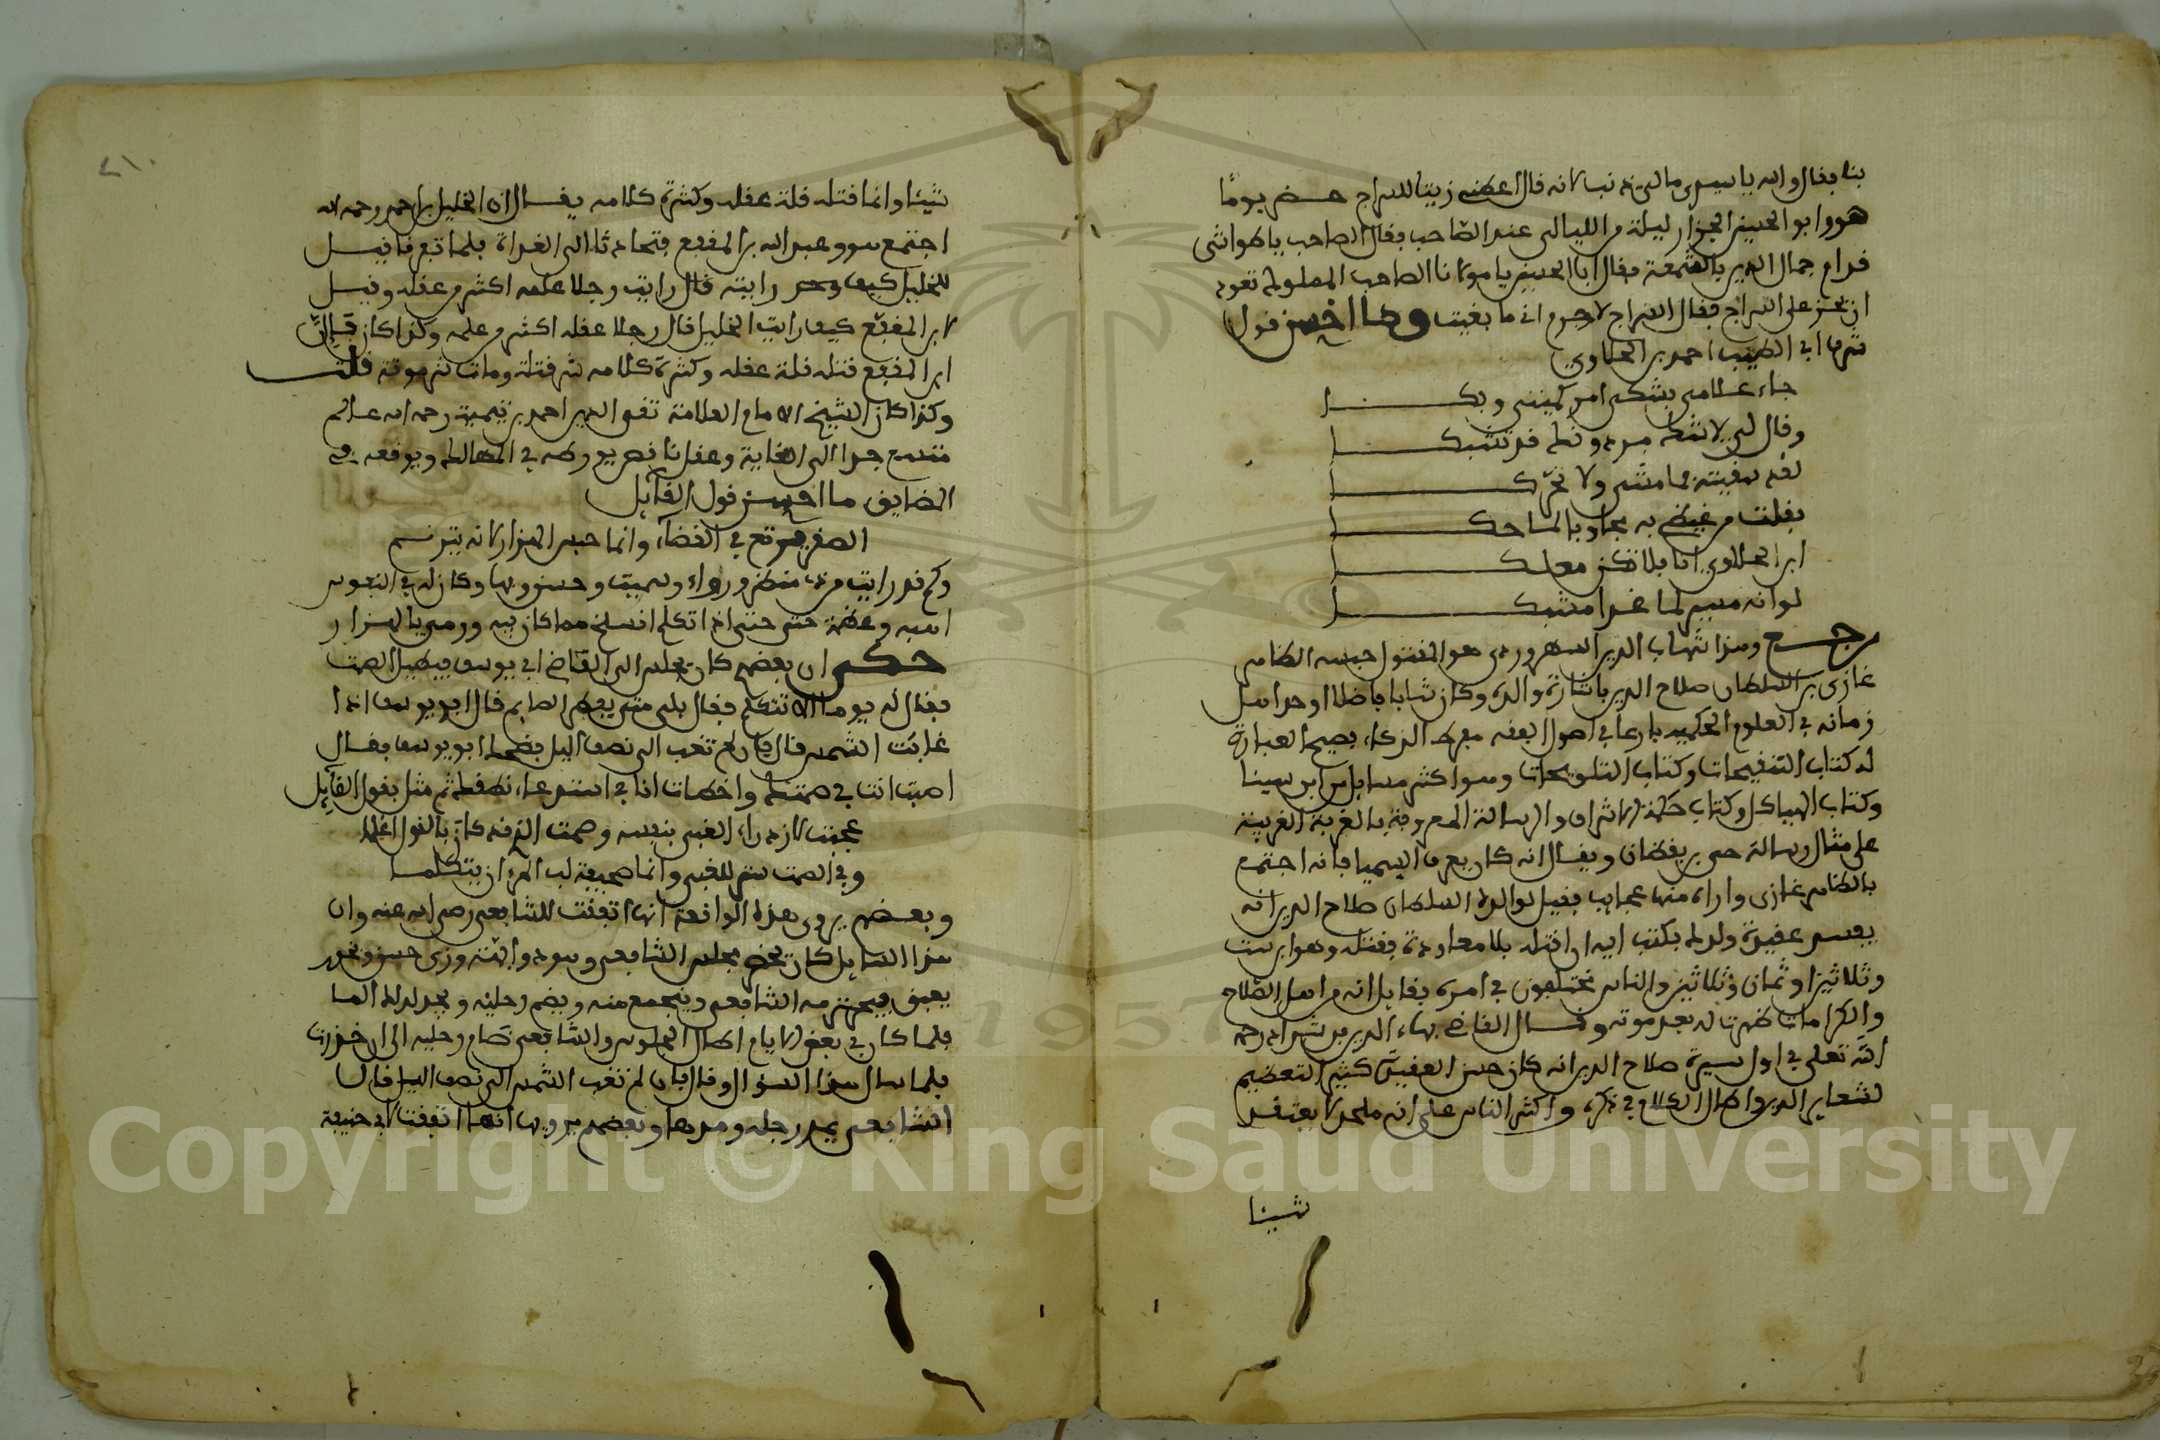 بنا فقال والله يا سيدي مالي ذنب لانه قال اعطني زيتا للسراج حضر يوما
هو وابو الحسين الجزار ليلة من الليالي عند الصاحب فقال الصاحب يا طواشي
قدام جمال الدين بالشمعة فقال ابا الحسين يا مولانا الصاحب المملوك تعود
ان يخر على السراج فقال السراج لا جرم اني ما بقيت وما احسن قول
شرف ابي الطيب احمد بن الحلاوي
جاء غلامي يشكي امر كميتي وبكا
وقال لي لا شك برذونك قد تشبكا
قد سقيته فما مشى ولا تحركا
فقلت من غيظي به مجاوبا لما حكا
ابن الحلاوي انا فلا تكن معلكا
لو انه مسير لما غدا مشبكا
رجع وهذا شهاب الدين السهروردي هو المقتول حبسه الظاهر
غازي بن السلطان صلاح الدين باشارة والده وكان شابا فاضلا اوحد اهل
زمانه في العلوم الحكمية بارعا في اصول الفقه مفرط الذكاء فصيح العبارة
له كتاب التنقيحات وكتاب التلويحات وهو اكثر مسايل من ابن سينا
وكتاب الهياكل وكتاب حكمة الاشراق والرسالة المعروفة بالغربة الغربية
على مثال رسالة حي بن يقظان ويقال انه كان يعرف السيميا فانه اجتمع
بالظاهر غازي واراه منها عجايب فقيل لوالده السلطان صلاح الدين انه
يفسد عقيدة ولدك فكتب اليه ان اقتله بلا معاودة فقتله وهو ابن ست
وثلاثين او ثمان وثلاثين والناس مختلفون في امره فقايل انه من اهل الصلاح
والكرامات ظهرت له بعد موته وقال القاضي بهاء الدين بن شداد رحمه
الله تعلى في اول سيرة صلاح الدين انه كان حسن العقيدة كثير التعظيم
لشعاير الدين واطال الكلام في ذكره واكثر الناس على انه ملحد لا يعتقد
شيئا
شيئا وانما قتله قلة عقله وكثرة كلامه يقال ان الخليل بن احمد رحمه الله
اجتمع هو وعبد الله بن المقفع فتحادثا الى الغداة فلما تفرقا قيل
للخليل كيف رايته قال رايت رجلا علمه اكثر من عقله وقيل
لابن المقفع كيف رايت الخليل قال رجلا عقله اكثر من علمه وكذا كان فان
ابن المقفع قتله قلة عقله وكثرة كلامه شر قتلة ومات شر موتة قلت
وكذا كان الشيخ الامام العلامة تقي الدين احمد بن تيمية رحمه الله علم
متسع جدا الى الغاية وعقل ناقص يورطه في المهالك ويوقعه في
المضايق ما احسن قول القايل
الصقر يرتع في الفضاء وانما حبس الهزار لانه يترنم
وكم قد رايت من ذي منظر ورواء وسمت وحسن وبهاء وكان له في النفوس
ابهة وعظمة حتى اذا تكلم انسلخ مما كان فيه ورمي بالهزار
حكي ان بعضهم كان يجلس الى القاضي ابي يوسف فيطيل الصمت
فقال له يوما الا تتكلم فقال بلى متى يفطر الصايم قال ابو يوسف اذا
غابت الشمس قال فان لم تغب الى نصف الليل فضحك ابو يوسف فقال
اصبت انت في صمتك واخطات انا في استدعاء نطقك ثم مثل بقول القايل
عجبت لازراء الغبي بنفسه وصمت الذي قد كان بالقول اعلما
وفي الصمت ستر للغبي وانما صحيفة لب المرء ان يتكلما
وبعضهم يروي هذه الواقعة انها اتفقت للشافعي رضي الله عنه وان
هذا السايل كان يحضر مجلس الشافعي وهو ذو ابهة وزي حسن وقعود
يعبق فيحترمه الشافعي ويتجمع منه ويضم رجليه ويجد لذلك الما
فلما كان في بعض الايام اطال الجلوس والشافعي ضام رجليه الى ان خدرت
فلما سال هذا السؤال وقال فان لم تغب الشمس الى نصف الليل قال
الشافعي يمد رجله ومدها وبعضهم يرويها انها اتفقت لابي حنيفة
Copyright © King Saud University
1957